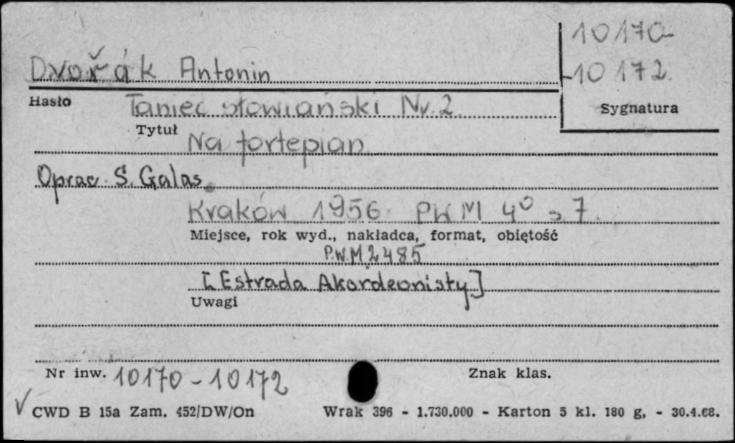 10170-
Dvořák Antonin
10172.
Hasło
Taniec słowiański Nr. 2
Sygnatura
Tytuł
Na fortepian
Oprac S. Galas.
Kraków 1956 PWM 4° s 7.
Miejsce, rok wyd., nakładca, format, objętość
P.W.M. 2485
[Estrada Akordeonisty]
Uwagi
Nr inw. 10170-10172
Znak klas.
CWD B 15a Zam. 452/DW/On Wrak 396 - 1.730.000 - Karton 5 kl. 180 g, - 30.4.68.